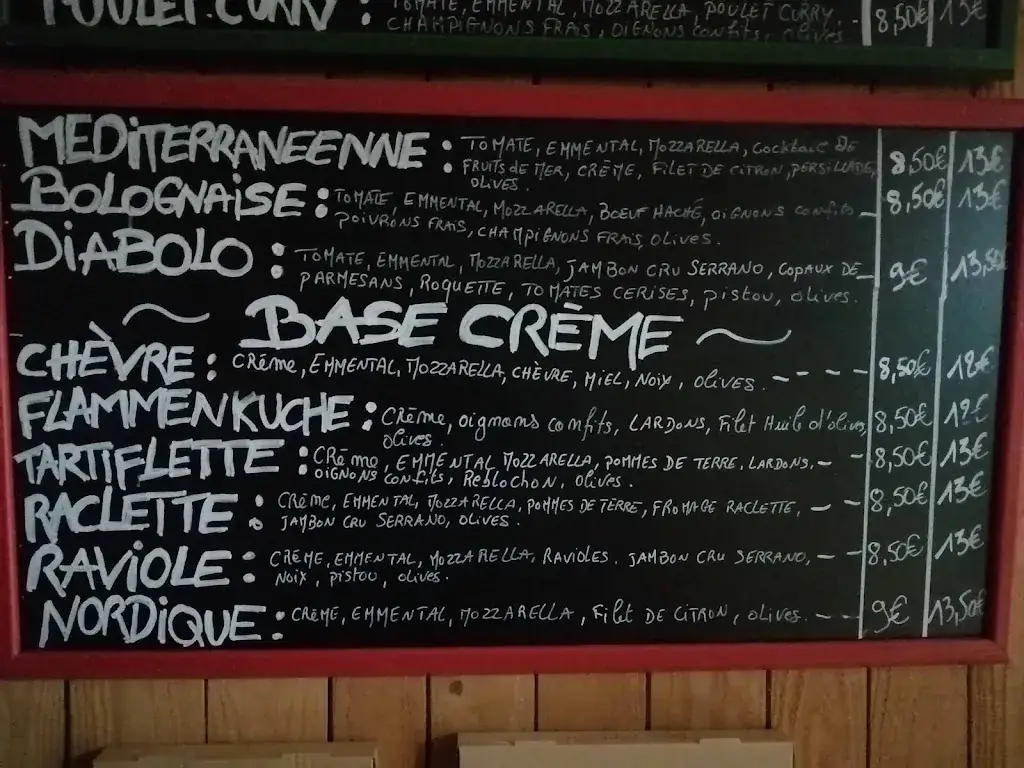 POULET.CURRY : TOMATE, EMMENTAL, MOZZARELLA, POULET CURRY, - 8,50€ 13€
CHAMPIGNONS FRAIS, OIGNONS confits, olives
MEDITERRANEENNE : TOMATE, EMMENTAL, MOZZARELLA, COCKTAIL DE 8.50€ 13€
FRUITS de MER, CRÈME, FILET DE CITRON, PERSILLADE,
OLIVES.
BOLOGNAISE : TOMATE, EMMENTAL, MOZZARELLA, BOEUF HACHÉ, OIGNONS confits - 8,50€ 13€
POIVRONS FRAIS, CHAMPIGNONS FRAIS, OLIVES.
DIABOLO : TOMATE, EMMENTAL, MOZZARELLA, JAMBON CRU SERRANO, COPAUX DE - 9€ 13,50€
PARMESANS, ROQUETTE, TOMATES CERISES, pistou, olives.
~ BASE CRÈME ~
CHÈVRE : CRème, EMMENTAL, MOZZARELLA, CHÈVRE, MIEL, NOIX, OLIVES. - - - - 8,50€
FLAMMENKUCHE : CRème, oignons confits, LARDONS, Filet Huile d'olive, 8,50€
olives.
TARTIFLETTE : CRème, EMMENTAL, MOZZARELLA, POMMES DE TERRE, LARDONS, - - 8,50€ 13€
OIGNONS confits, Reblochon, olives.
RACLETTE : CRème, EMMENTAL, MOZZARELLA, POMMES DE TERRE, FROMAGE RACLETTE, - - 8,50€ 13€
JAMBON CRU SERRANO, OLIVES.
RAVIOLE : CRÈME, EMMENTAL, MOZZARELLA, RAVIOLES, JAMBON CRU SERRANO, - - 8,50€ 13€
NOIX, pistou, olives.
NORDIQUE : CRèME, EMMENTAL, MOZZARELLA, Filet DE CITRON, olives. - - - 9€ 13,50€